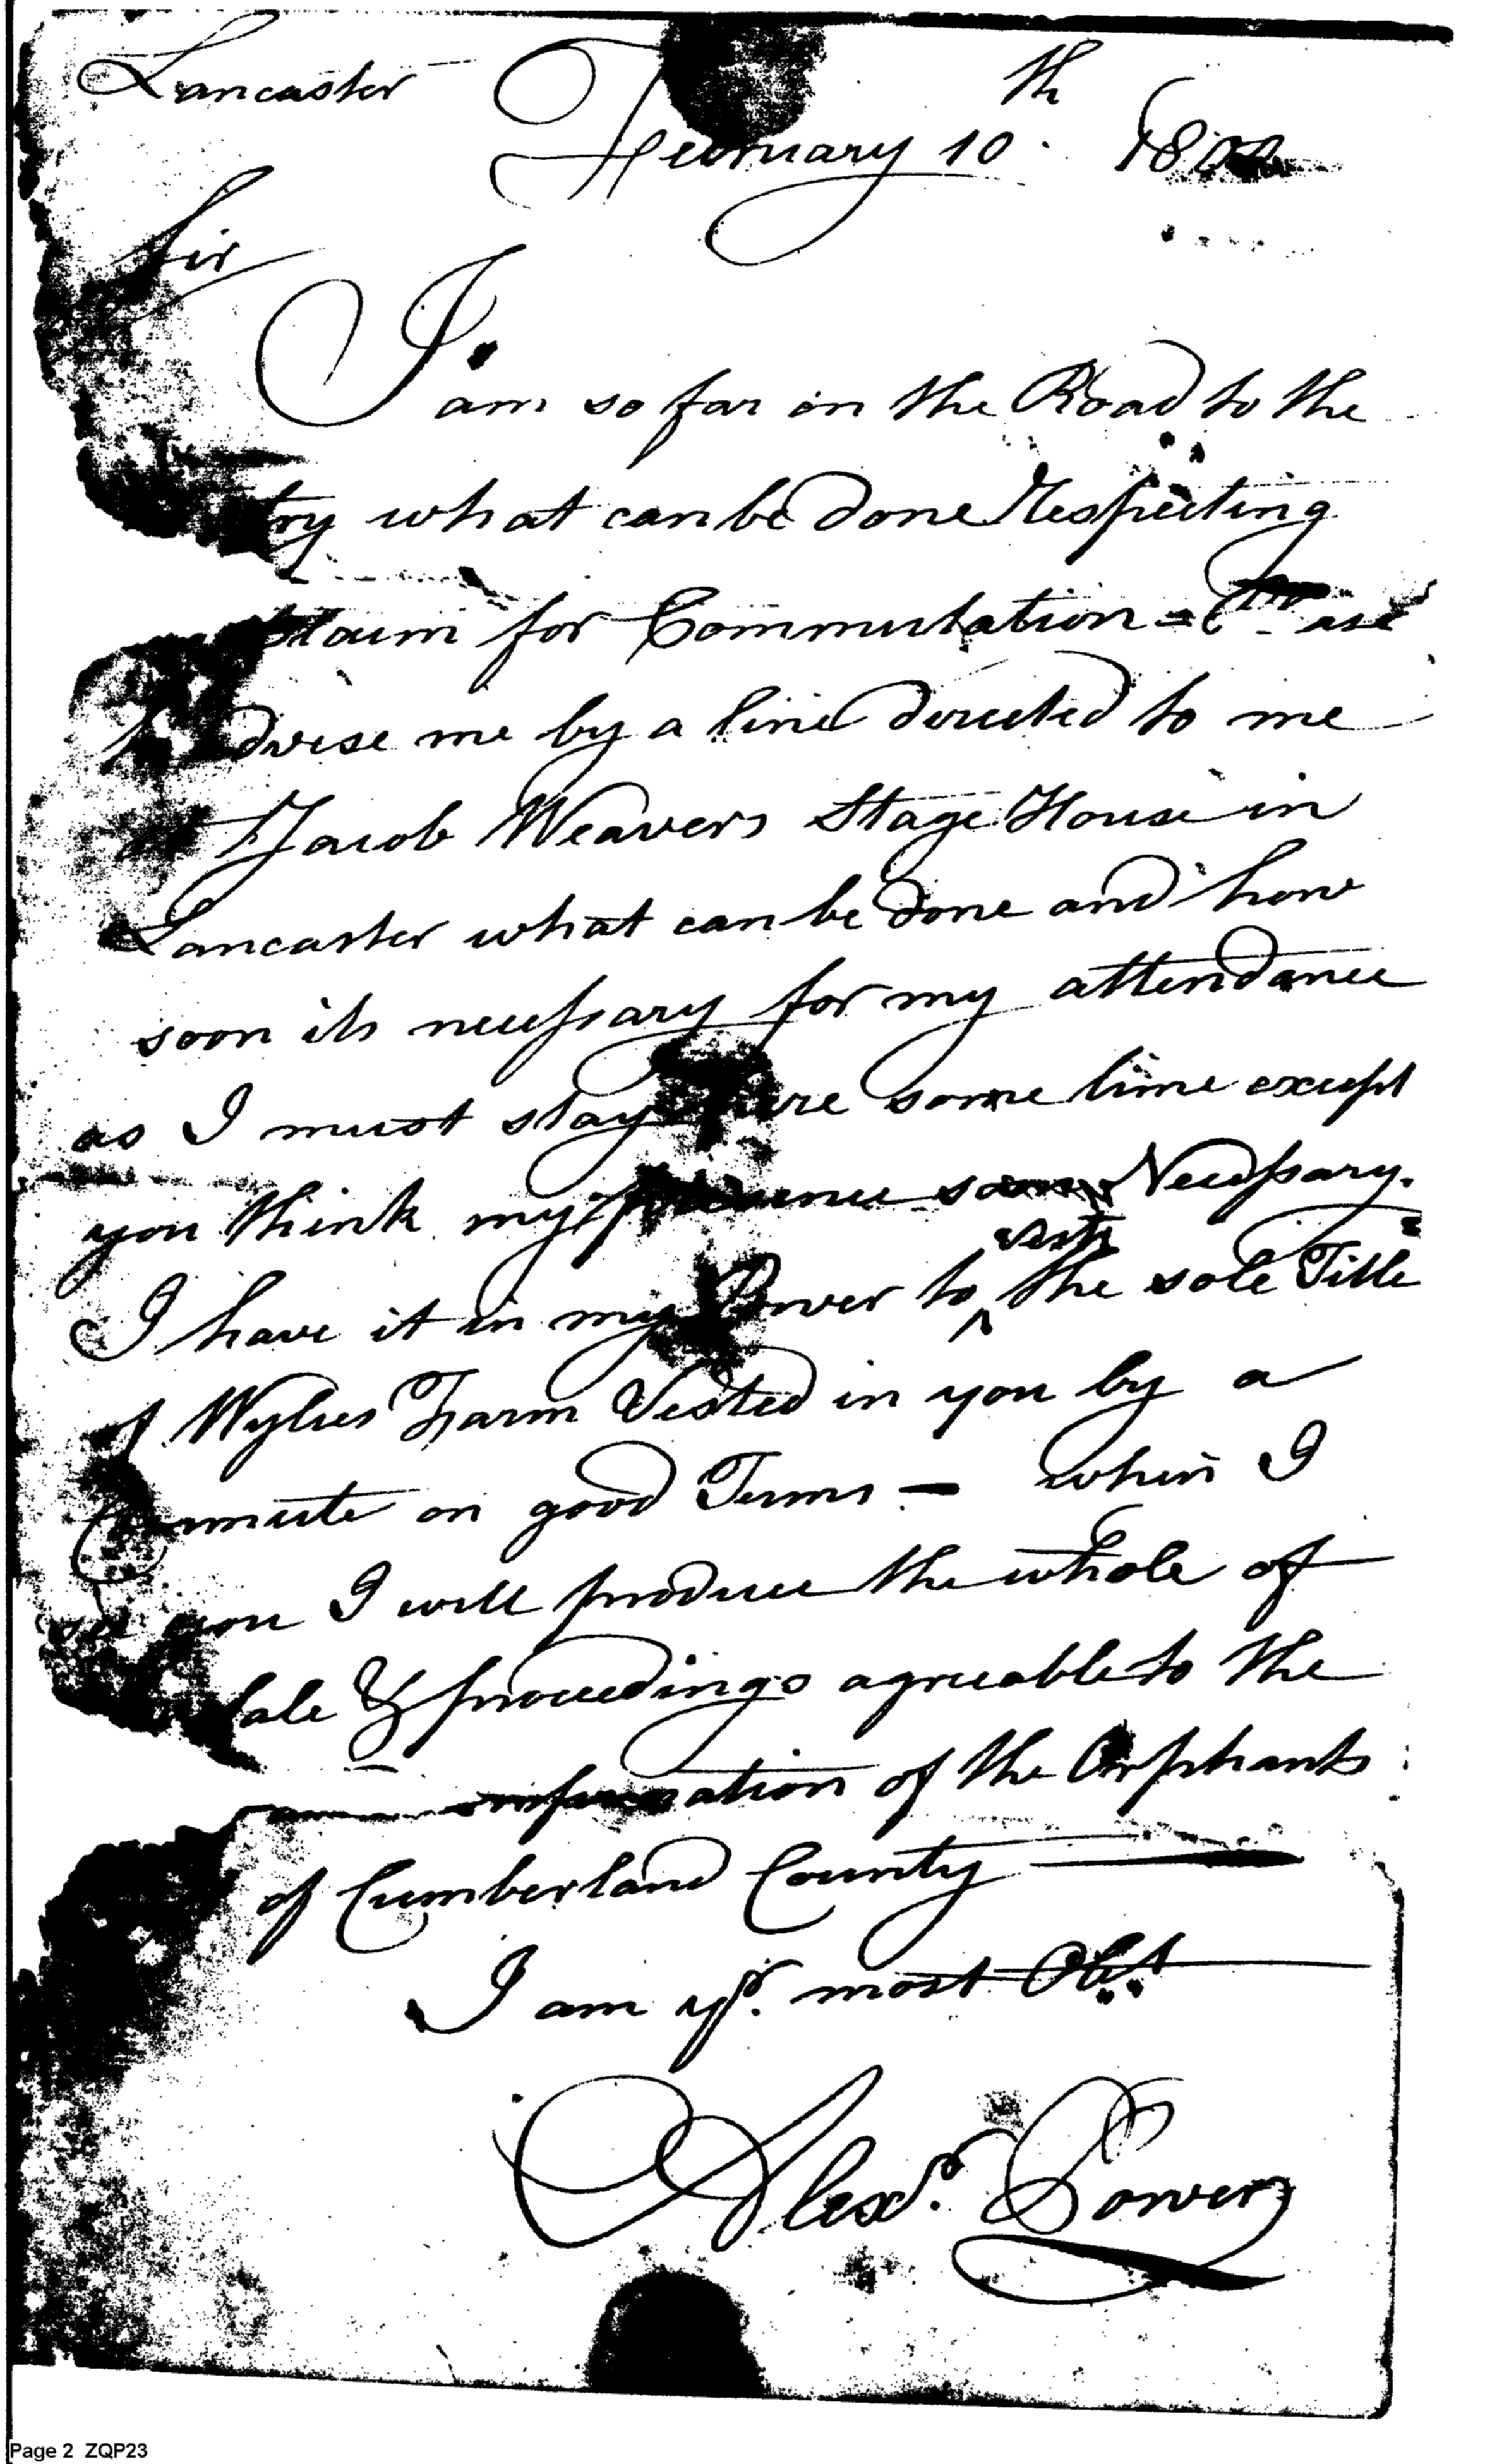 Lancaster
February 10th. 1800
Sir
I am so far on the Road to the
try what can be done Respecting
Claim for Commutation = Please
advise me by a line directed to me
Jacob Weavers Stage House in
Lancaster what can be done and how
soon its necessary for my attendance
as I must stay here some time except
you think my presence soon Necessary.
I have it in my Power to vest the sole Title
of Wylies Farm Vested in you by a
Commute on good Terms — when I
see you I will produce the whole of
Sale & proceedings agreeable to the
of the Orphants
of Cumberland County
I am yr. most Obt.
Alexr. Power
Page 2 ZQP23